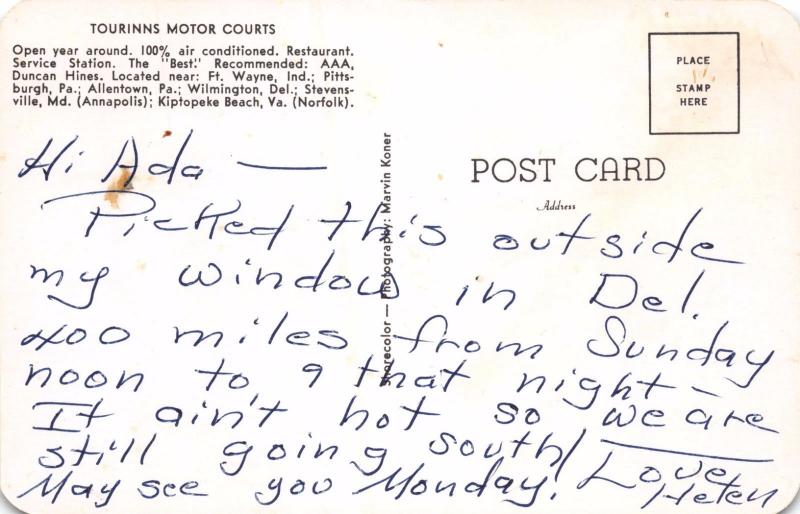 TOURINNS MOTOR COURTS
Open year around. 100% air conditioned. Restaurant.
Service Station. The "Best." Recommended: AAA,
Duncan Hines. Located near: Ft. Wayne, Ind.; Pitts-
burgh, Pa.; Allentown, Pa.; Wilmington, Del.; Stevens-
ville, Md. (Annapolis); Kiptopeke Beach, Va. (Norfolk).
PLACE
STAMP
HERE
POST CARD
Address
Photography: Marvin Koner
Hi Ada —
Picked this outside
my window in Del.
400 miles from Sunday
noon to 9 that night —
It ain't hot so we are
still going south!
May see you Monday!
Love
Helen